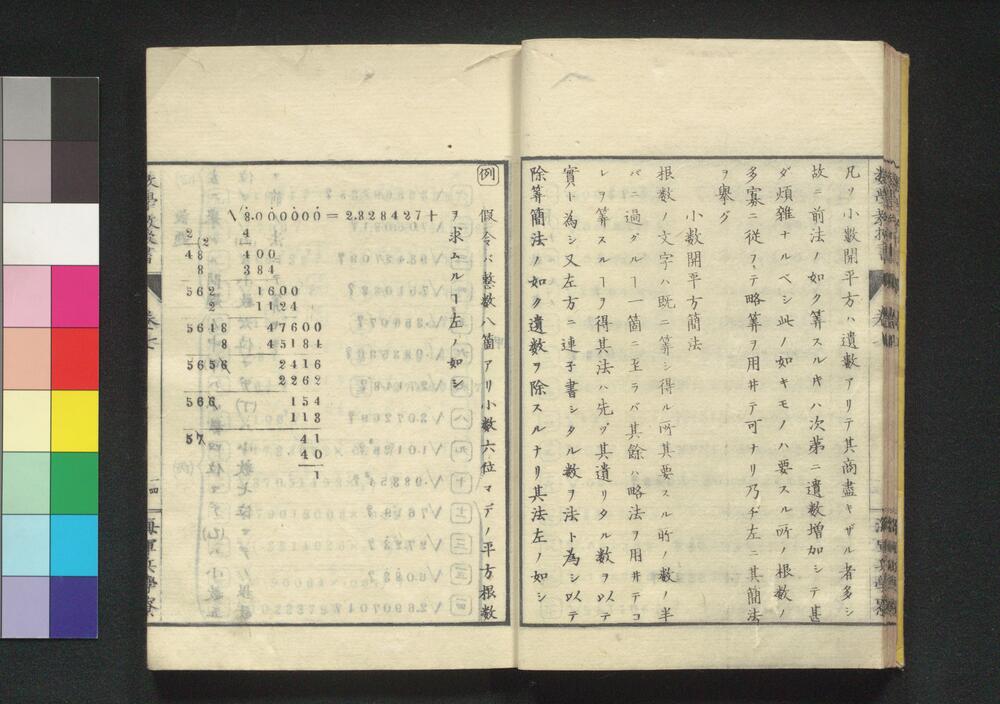 凡ソ小數開平方ハ遺數アリテ其商盡キザル者多シ
故ニ前法ノ如ク算スル𪜈ハ次第ニ遺數増加シテ甚
ダ煩雑ナルベシ此ノ如キモノハ要スル所ノ根數ノ
多寡ニ従フテ略算ヲ用井テ可ナリ乃チ左ニ其簡法
ヲ擧グ
小數開平方簡法
根數ノ文字ハ既ニ算シ得ル所其要スル所ノ數ノ半
バニ過グルヿ一箇ニ至ラバ其餘ハ略法ヲ用井テコ
レヲ算スルヿヲ得其法ハ先ヅ其遺リタル數ヲ以テ
實ト為シ又左方ニ連子書シタル數ヲ法ト為シ以テ
除算簡法ノ如ク遺數ヲ除スルナリ其法左ノ如シ
例 假令バ整數八箇アリ小數六位マデノ平方根數
ヲ求ムルヿ左ノ如シ
√8.000000 = 2.828427+
2 4
(2
48 400
8 384
562 1600
2 1124
5648 47600
8 45184
5656 2416
2262
566 154
113
57 41
40
1